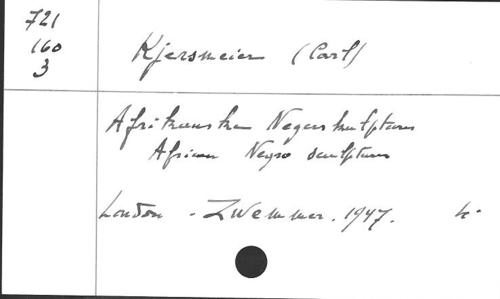 721
160
3
Kjersmeier (Carl)
Afrikanske Negerskulpturer
African Negro sculptures
London - Zwemmer. 1947. 4°